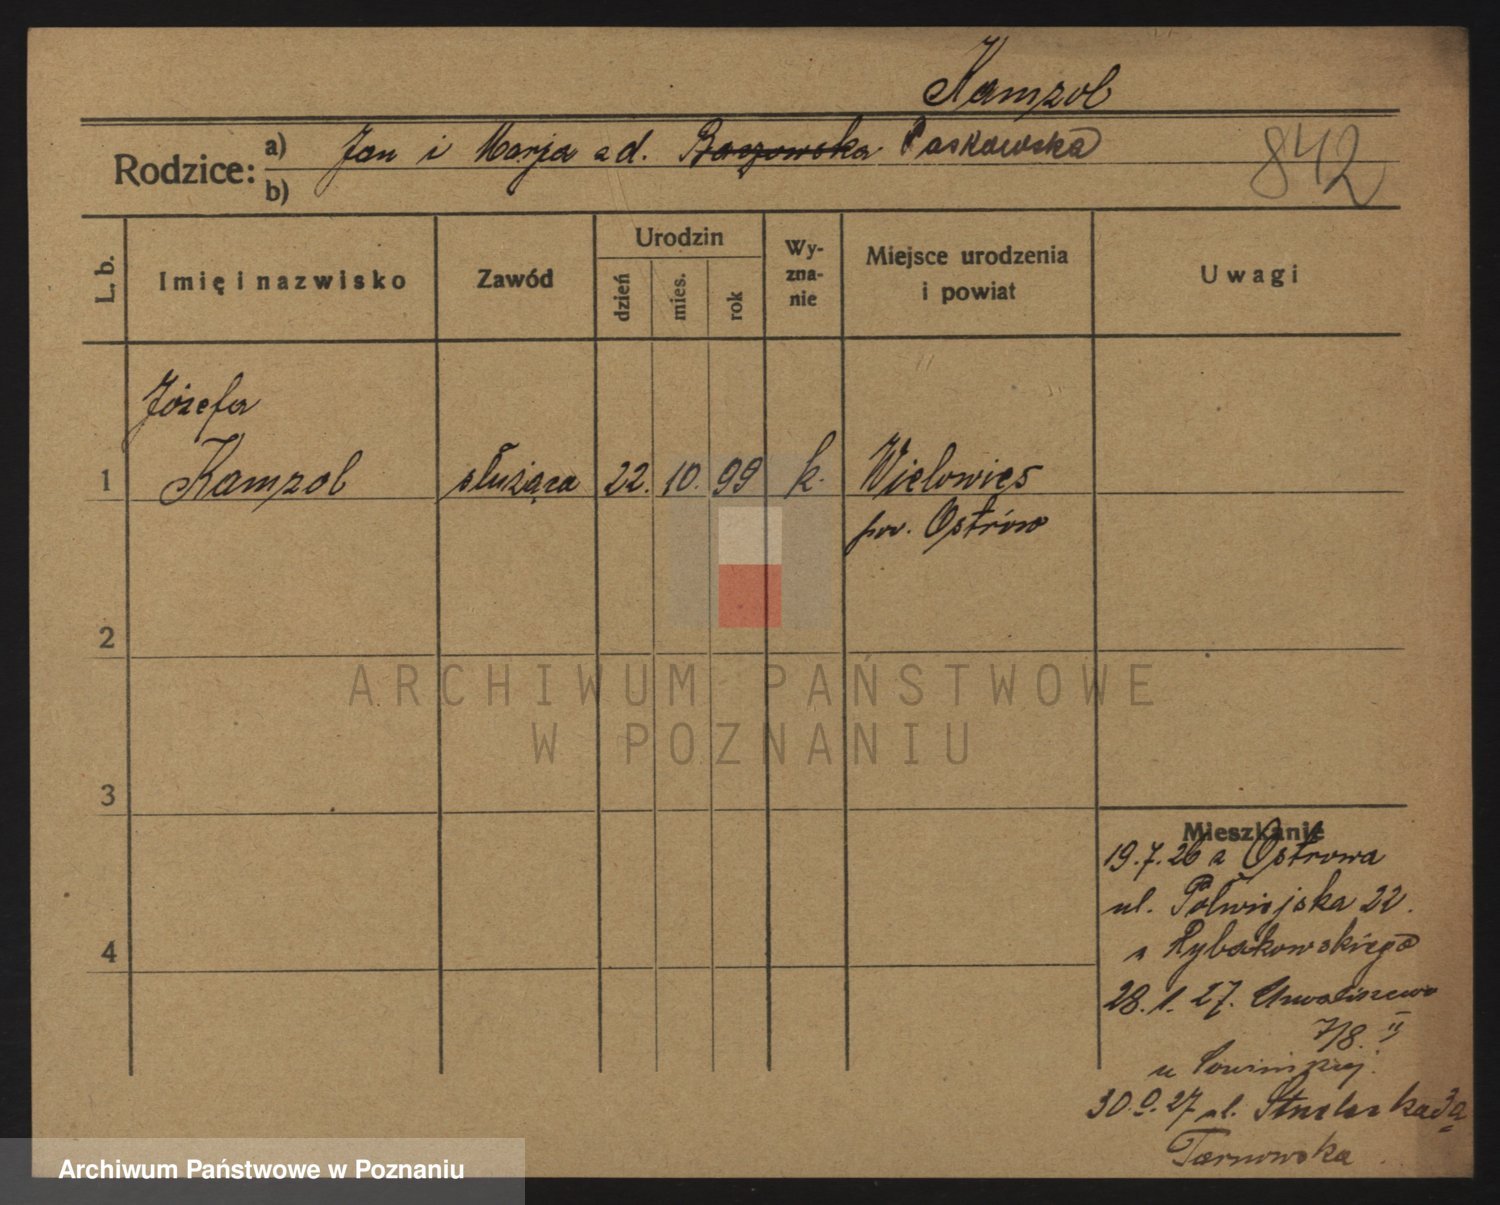 Kamzol
Rodzice: a) Jan i Marja z d. Baczowska Paskowska
b)
842
L. b.
Imię i nazwisko
Zawód
Urodzin
dzień
mies.
rok
Wy-
zna-
nie
Miejsce urodzenia
i powiat
Uwagi
Józefa
1 Kamzol służąca 22. 10. 99 k. Wielowieś
pow. Ostrów
2
3
4
Mieszkanie
19.7.26 z Ostrowa
ul. Półwiejska 22.
u Rybakowskiego
28.1.27.
7/8. II
u
30. 27 ul. Stolarska 3a
Tarnowska
ARCHIWUM PAŃSTWOWE
W POZNANIU
Archiwum Państwowe w Poznaniu